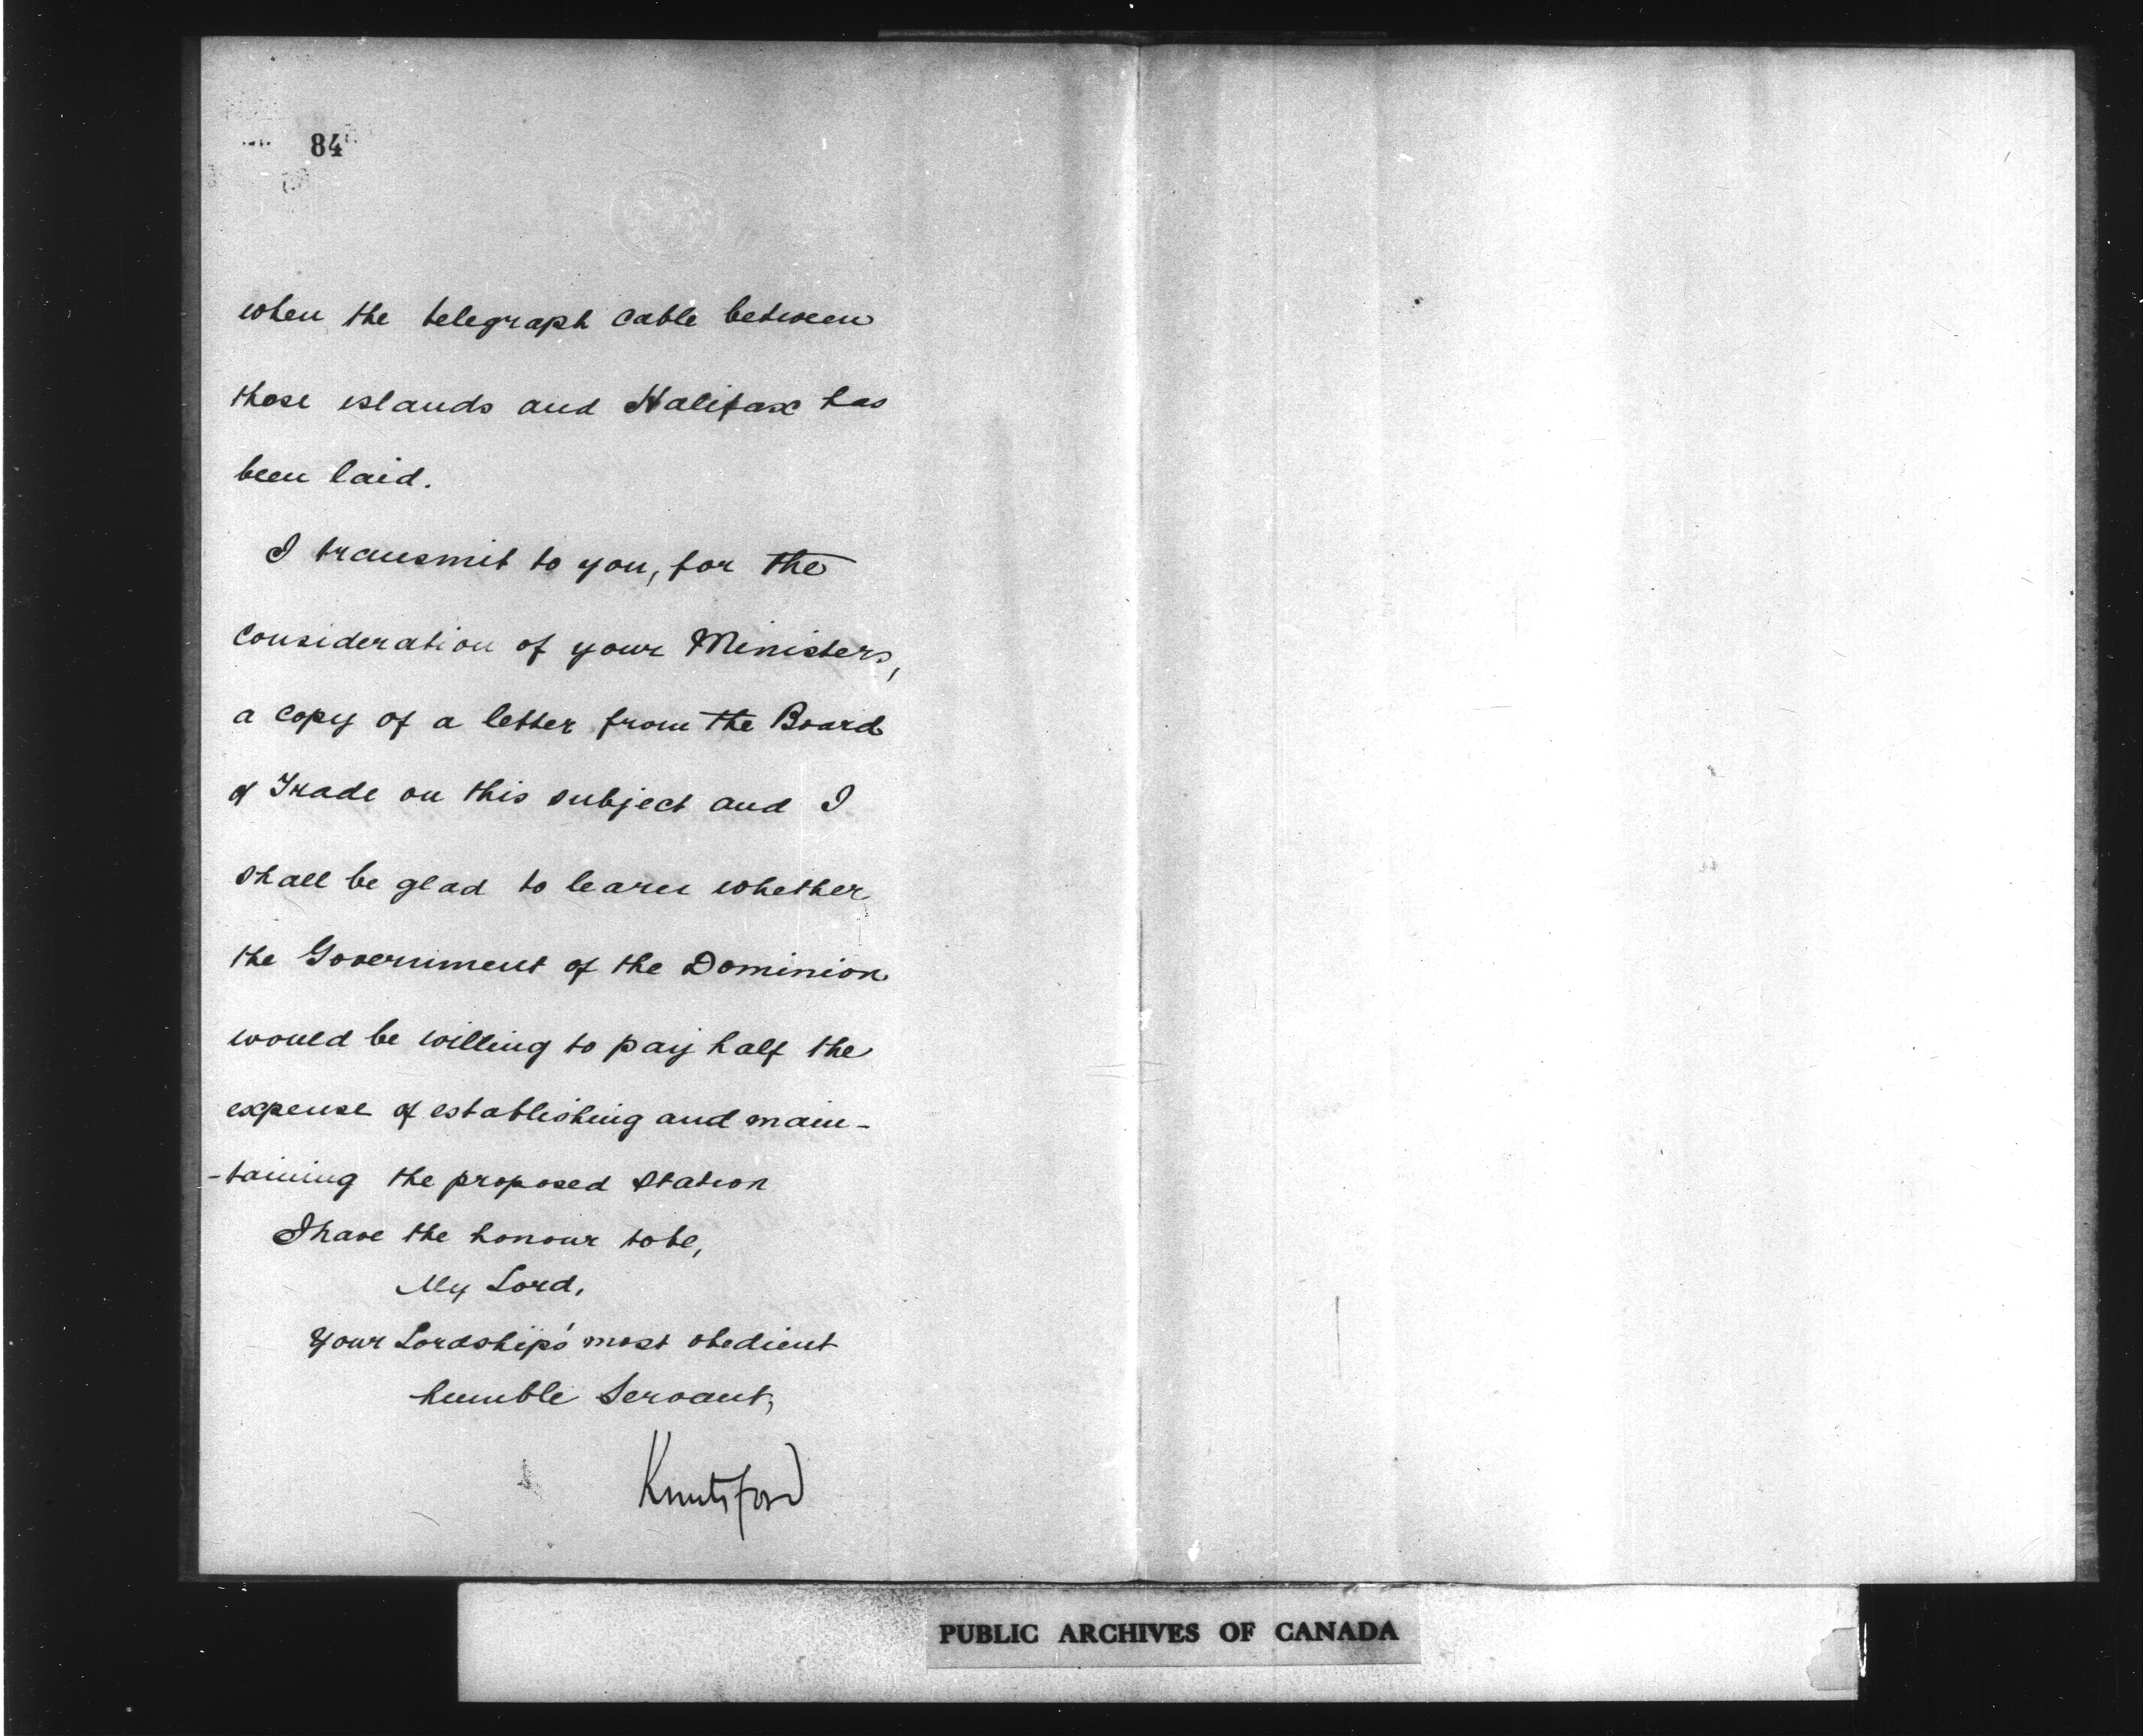 84
when the telegraph cable between
those islands and Halifax has
been laid.
I transmit to you, for the
consideration of your Ministers,
a copy of a letter from the Board
of Trade on this subject and I
shall be glad to learn whether
the Government of the Dominion
would be willing to pay half the
expense of establishing and main-
-taining the proposed Station
I have the honour to be,
My Lord,
Your Lordship's most obedient
humble Servant,
Knutsford
PUBLIC ARCHIVES OF CANADA